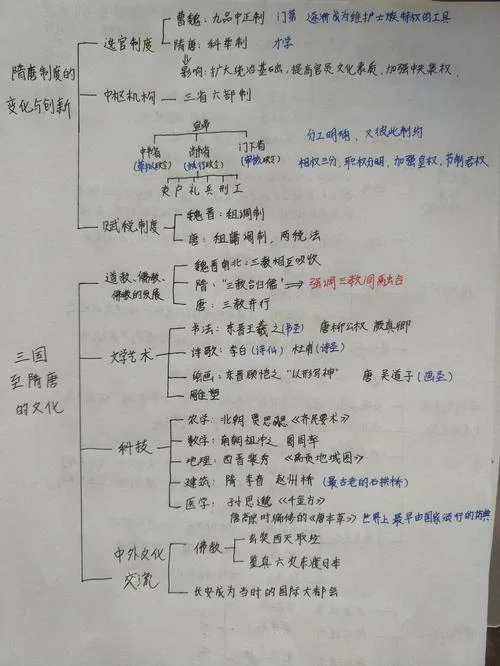 隋唐制度的
变化与创新
选官制度
曹魏:九品中正制 门第 逐渐成为维护士族特权的工具
隋唐:科举制 才学
影响:扩大统治基础,提高官员文化素质,加强中央集权.
中枢机构 三省六部制
皇帝
中书省 尚书省 门下省
(草拟政令) (执行政令) (审核政令)
吏户礼兵刑工
分工明确,又彼此制约
相权三分,职权分明,加强皇权,节制君权
赋税制度
魏晋:租调制
唐:租庸调制,两税法
三国
至隋唐
的文化
道教、儒教、
佛教的发展
魏晋南北:三教相互吸收
隋:"三教合归儒" ⇒ 强调三教间融合
唐:三教并行
文学艺术
书法:东晋王羲之(书圣) 唐柳公权 颜真卿
诗歌:李白(诗仙) 杜甫(诗圣)
绘画:东晋顾恺之"以形写神" 唐 吴道子(画圣)
雕塑
科技
农学:北朝 贾思勰《齐民要术》
数学:南朝祖冲之 圆周率
地理:西晋裴秀《禹贡地域图》
建筑:隋 李春 赵州桥 (最古老的石拱桥)
医学:孙思邈《千金方》
唐高宗时编修的《唐本草》世界上最早由国家颁行的药典
中外文化
交流
佛教
玄奘西天取经
鉴真六次东渡日本
长安成为当时的国际大都会